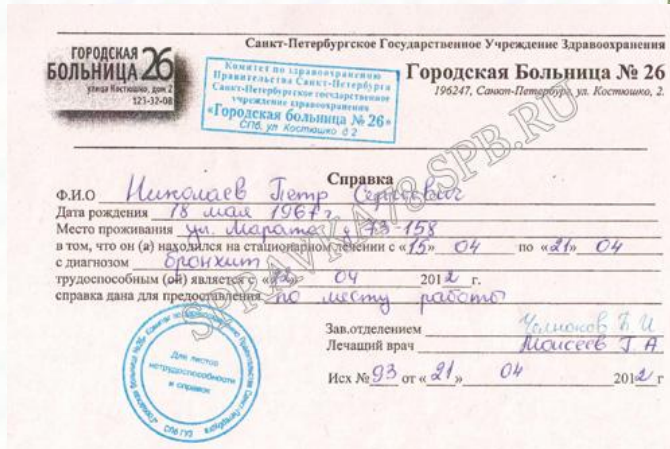 Санкт-Петербургское Государственное Учреждение Здравоохранения
ГОРОДСКАЯ
БОЛЬНИЦА 26
улица Костюшко, дом 2
123-32-08
Комитет по здравоохранению
Правительства Санкт-Петербурга
Санкт-Петербургское государственное
учреждение здравоохранения
«Городская больница № 26»
СПб, ул Костюшко д 2
Городская Больница № 26
196247, Санкт-Петербург, ул. Костюшко, 2.
SPRAVKA78.SPB.RU
Справка
Ф.И.О Николаев Петр Сергеевич
Дата рождения 18 мая 1967г
Место проживания ул. Марата д 73-158
в том, что он (а) находился на стационарном лечении с «15» 04 по «21» 04
с диагнозом бронхит
трудоспособным (ой) является с «22» 04 2012 г.
справка дана для предоставления по месту работы
Зав.отделением
Лечащий врач Моисеев Г А
Исх № 93 от «21» 04 2012 г
Для листов
нетрудоспособности
и справок